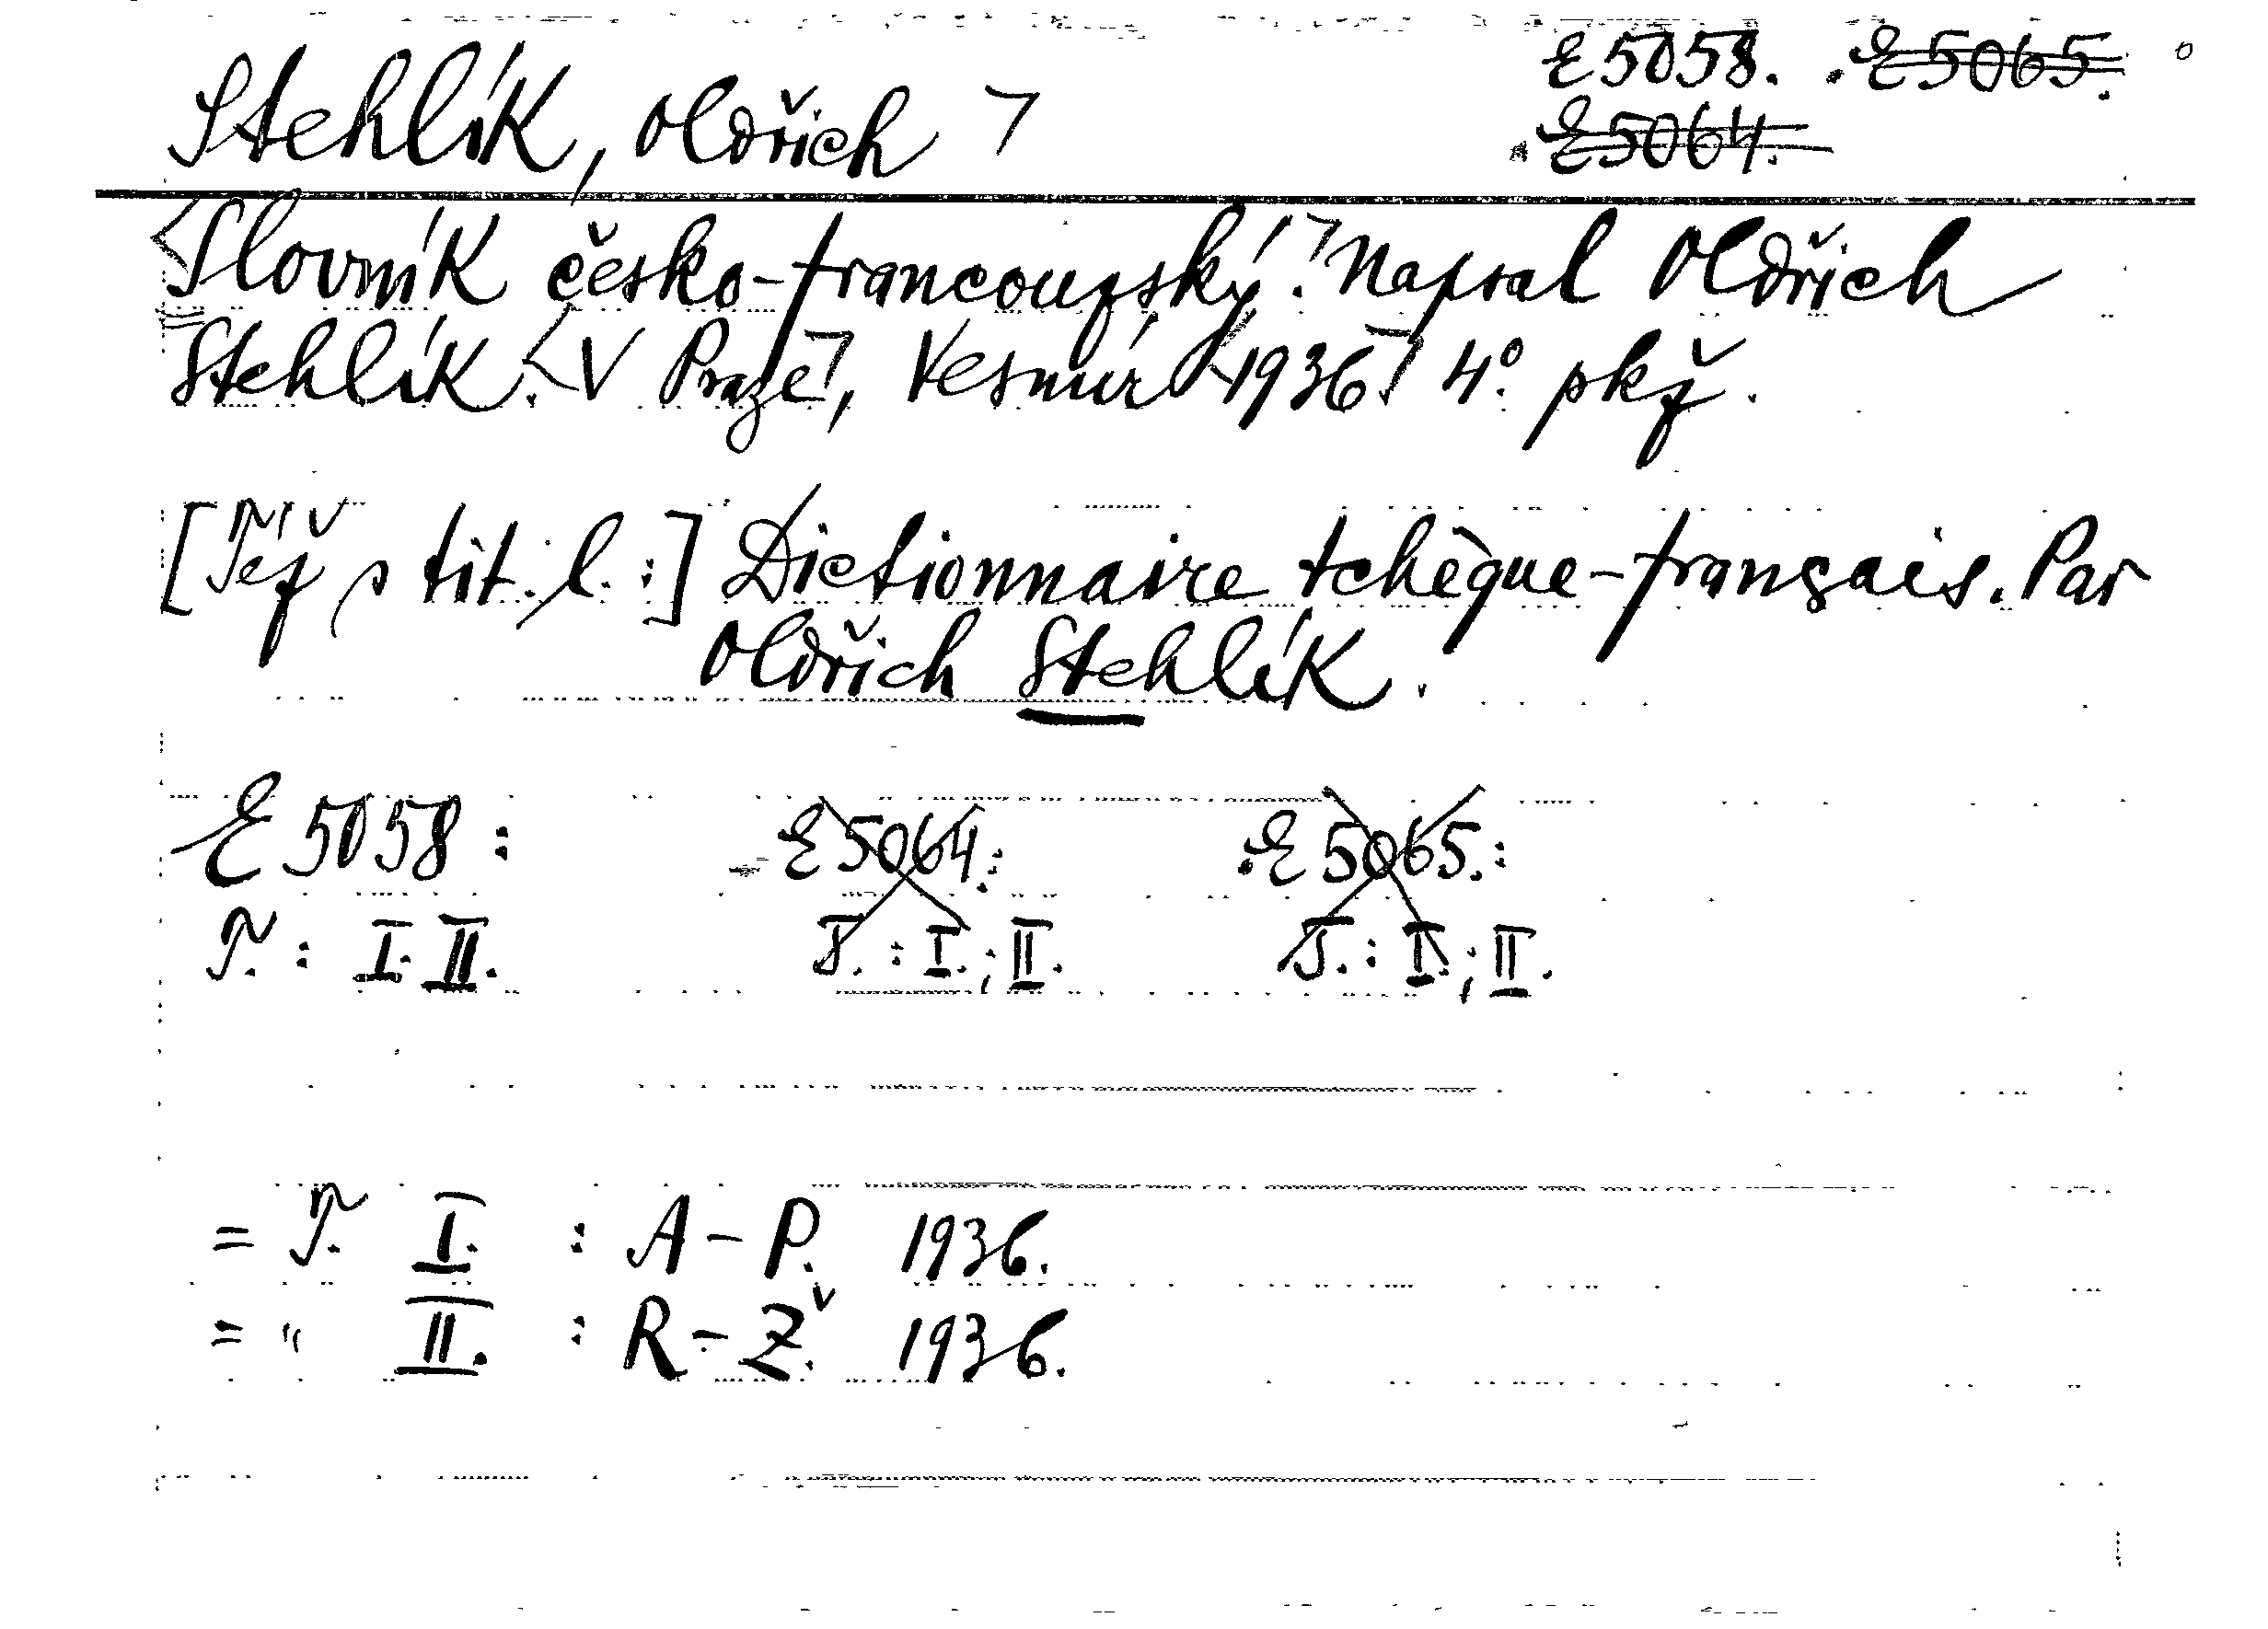 Stehlík, Oldřich ꓶ E 5058. E 5065.
E 5064.
Slovník česko-francouzský. Napsal Oldřich
Stehlík. V Praze, Vesmír 1936. 4° pkž.
[Též s tit. l.:] Dictionnaire tchèque-français. Par
Oldřich Stehlík.
E 5058: E 5064.: E 5065.:
T.: I. II. T.: I.; II. T.: I.; II.
= T. I. : A-P. 1936.
= " II. : R-Ž. 1936.